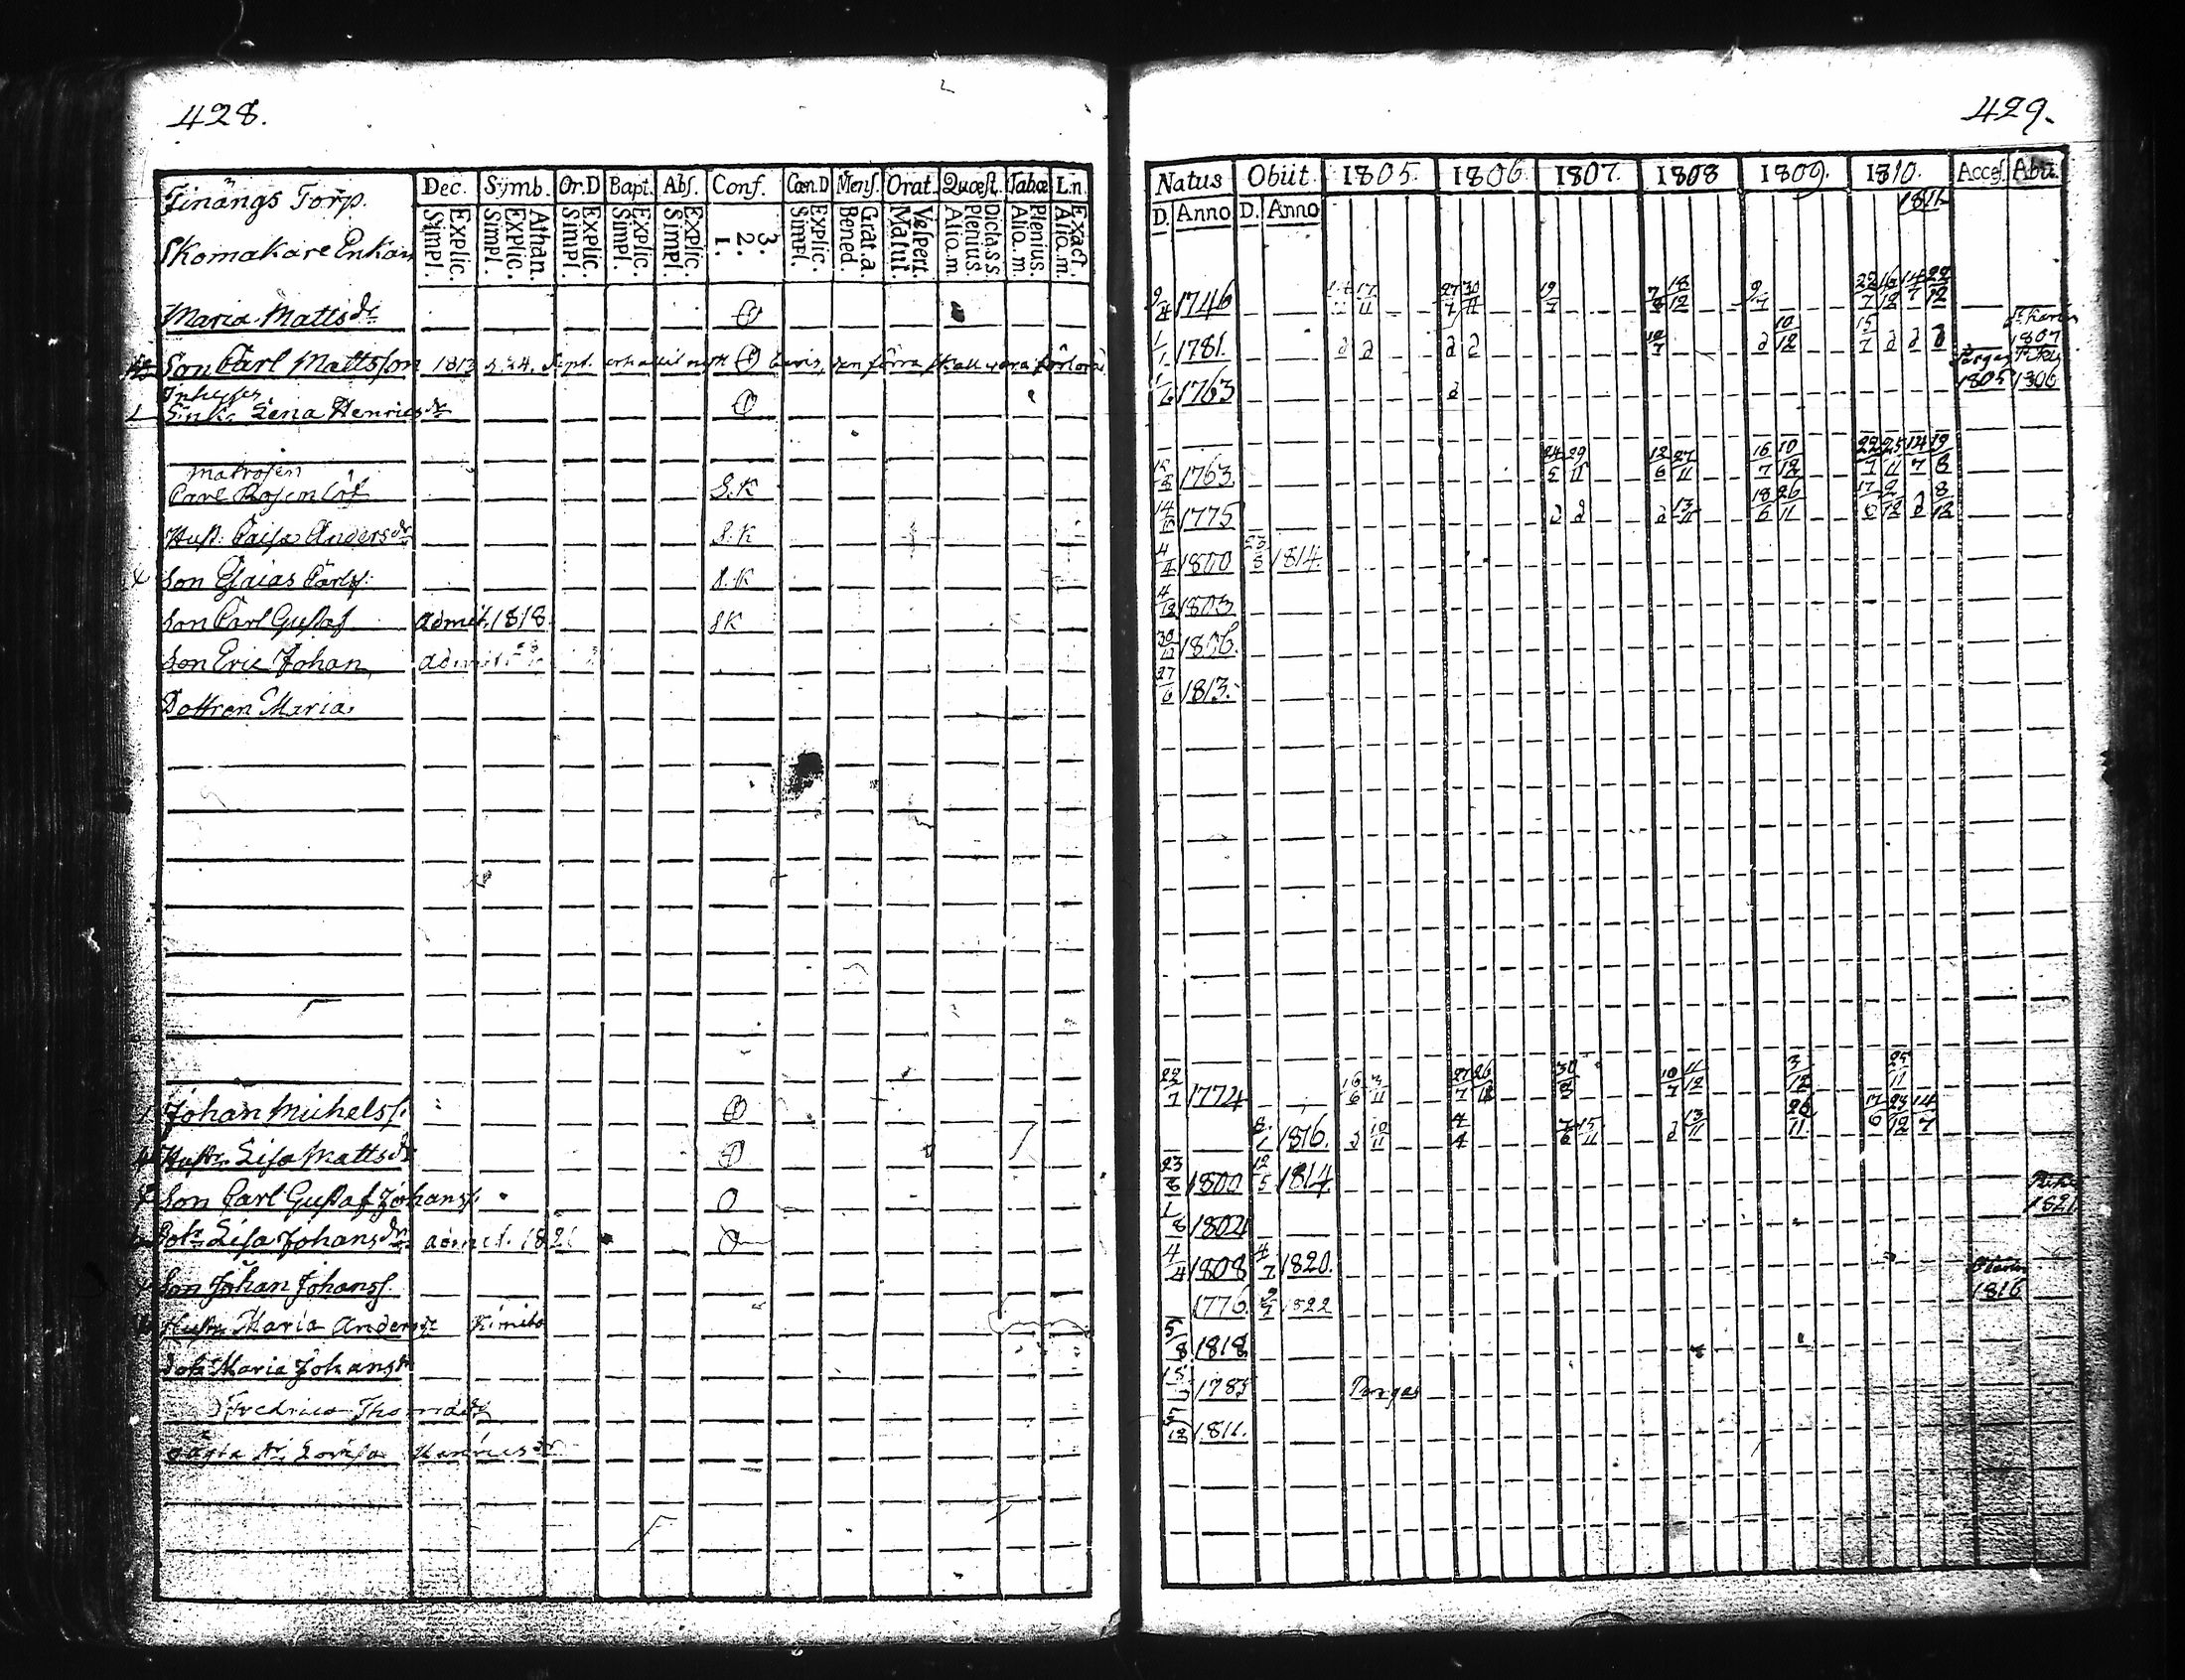 428.
Finängs Torp.
Skomakare Enkan
Dec. Symb. Or.D Bapt. Abſ. Conf. Cœn.D Menſ. Orat. Quœſt. Tabœ L.n.
Explic. Simpl. Athan. Explic. Simpl. Explic. Simpl. Explic. Simpl. Explic. Simpl. 3. 2. 1. Explic. Simpl. Grat.a Bened. Veſpert. Matut. Dicta.s.s. Plenius. Alio.m. Plenius. Alio.m. Exact. Alio.m.
Maria Mattsdr
Son Carl Mattsſon 1813 d. 24. Sept. erhållit nytt bevis, den förra ſkall vara förlorad
Inhyſes
Enk. Lena Henricsdr
Matroſen
Carl Roſenlöf S.K
Huſt. Caiſa Andersdr S.K
Son Eſaias Carlſ. S.K
Son Carl Guſtaf admit. 1818. SK
Son Eric Johan admit.
Dottren Maria
Johan Michelsſ.
Huſtr. Liſa Mattsdr
Son Carl Guſtaf Johansſ.
Dotr Liſa Johansdr admit. 1821
Son Johan Johansſ.
Huſtr. Maria Andersdr Kimito
Dotr Maria Johansdr
Fredrica Thomasdr
Loviſa Henricsdr
429.
Natus Obiit 1805. 1806. 1807. 1808 1809. 1810. Acceſ. Abii.
D. Anno D. Anno 1811
9/4 1746 17/11 27/7 30/11 19/7 7/8 18/12 9/7 22/7 16/12 14/7 22/12
1/1 1781. d d d d 10/7 d 10/12 15/7 d d d 1807
1/6 1763 d Pargas 1805 1806
1763 24/5 29/11 12/6 27/11 16/7 10/12 22/7 25/11 14/7 19/8
14/10 1775 d d d 13/11 18/6 26/11 17/6 2/12 d 8/12
4/4 1800 23/5 1814.
4/12 1803
30/10 1806.
27/6 1813.
22/7 1774 16/6 3/11 27/7 26/12 30/8 10/7 11/12 3/12 25/11
8/1 1816. d 10/11 4/4 7/6 15/11 d 13/11 26/11 17/6 23/12 14/7
23/8 1800 12/5 1814
1/8 1802 1821
4/4 1808 4/7 1820.
1776. 1822 1816
5/8 1818
1783 Pargas
5/12 1811.